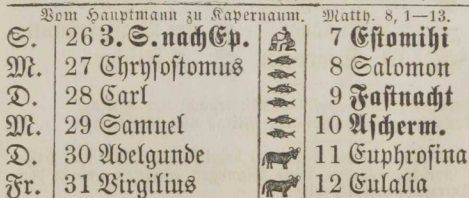 Vom Hauptmann zu Kapernaum. Matth. 8, 1—13.
S. 26 3. S. nach Ep. 7 Estomihi
M. 27 Chrysostomus 8 Salomon
D. 28 Carl 9 Fastnacht
M. 29 Samuel 10 Ascherm.
D. 30 Adelgunde 11 Euphrosina
Fr. 31 Virgilius 12 Eulalia